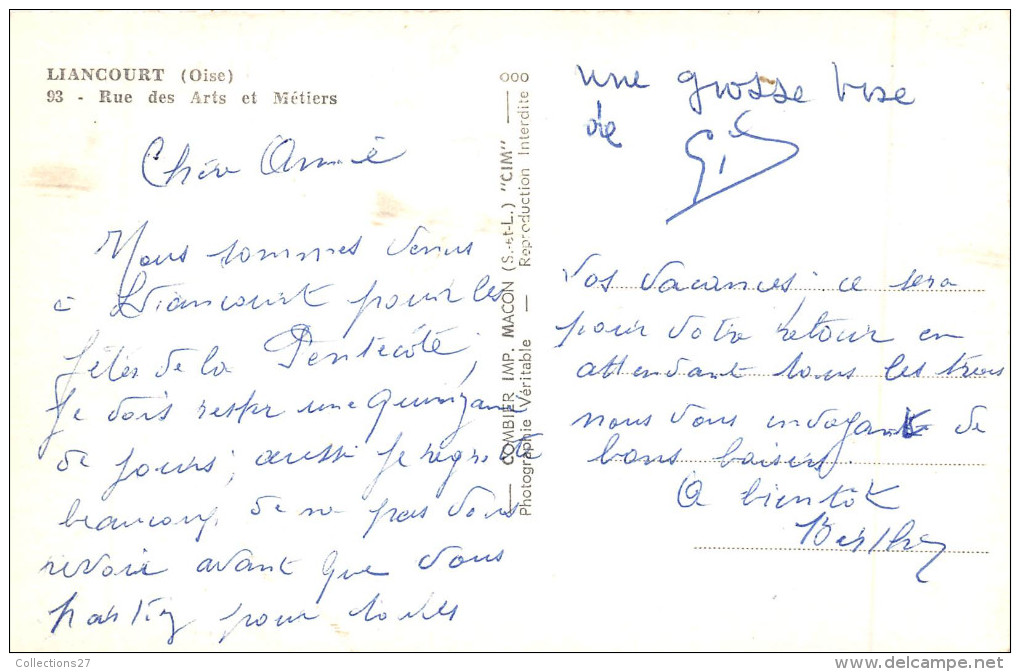 LIANCOURT (Oise)
93 - Rue des Arts et Métiers
Chère Amie
Nous sommes venus
à Liancourt pour les
fêtes de la Pentecôte,
je dois rester une quinzaine
de jours; aussi je regrette
beaucoup de ne pas vous
revoir avant que vous
partiez pour toutes
COMBIER IMP. MACON (S.-et-L.) "CIM"
Photographie Véritable — Reproduction Interdite
une grosse bise
de
vos vacances, ce sera
pour votre retour en
attendant tous les trois
nous vous envoyant de
bons baisers.
A bientôt
Berthe
Collections27
www.delcampe.net